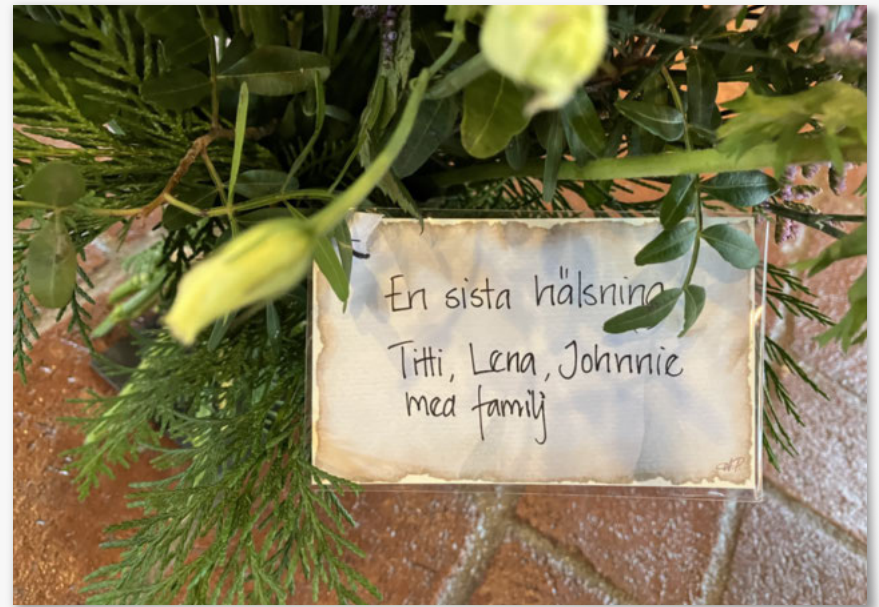 En sista hälsning
Titti, Lena, Johnnie
med familj